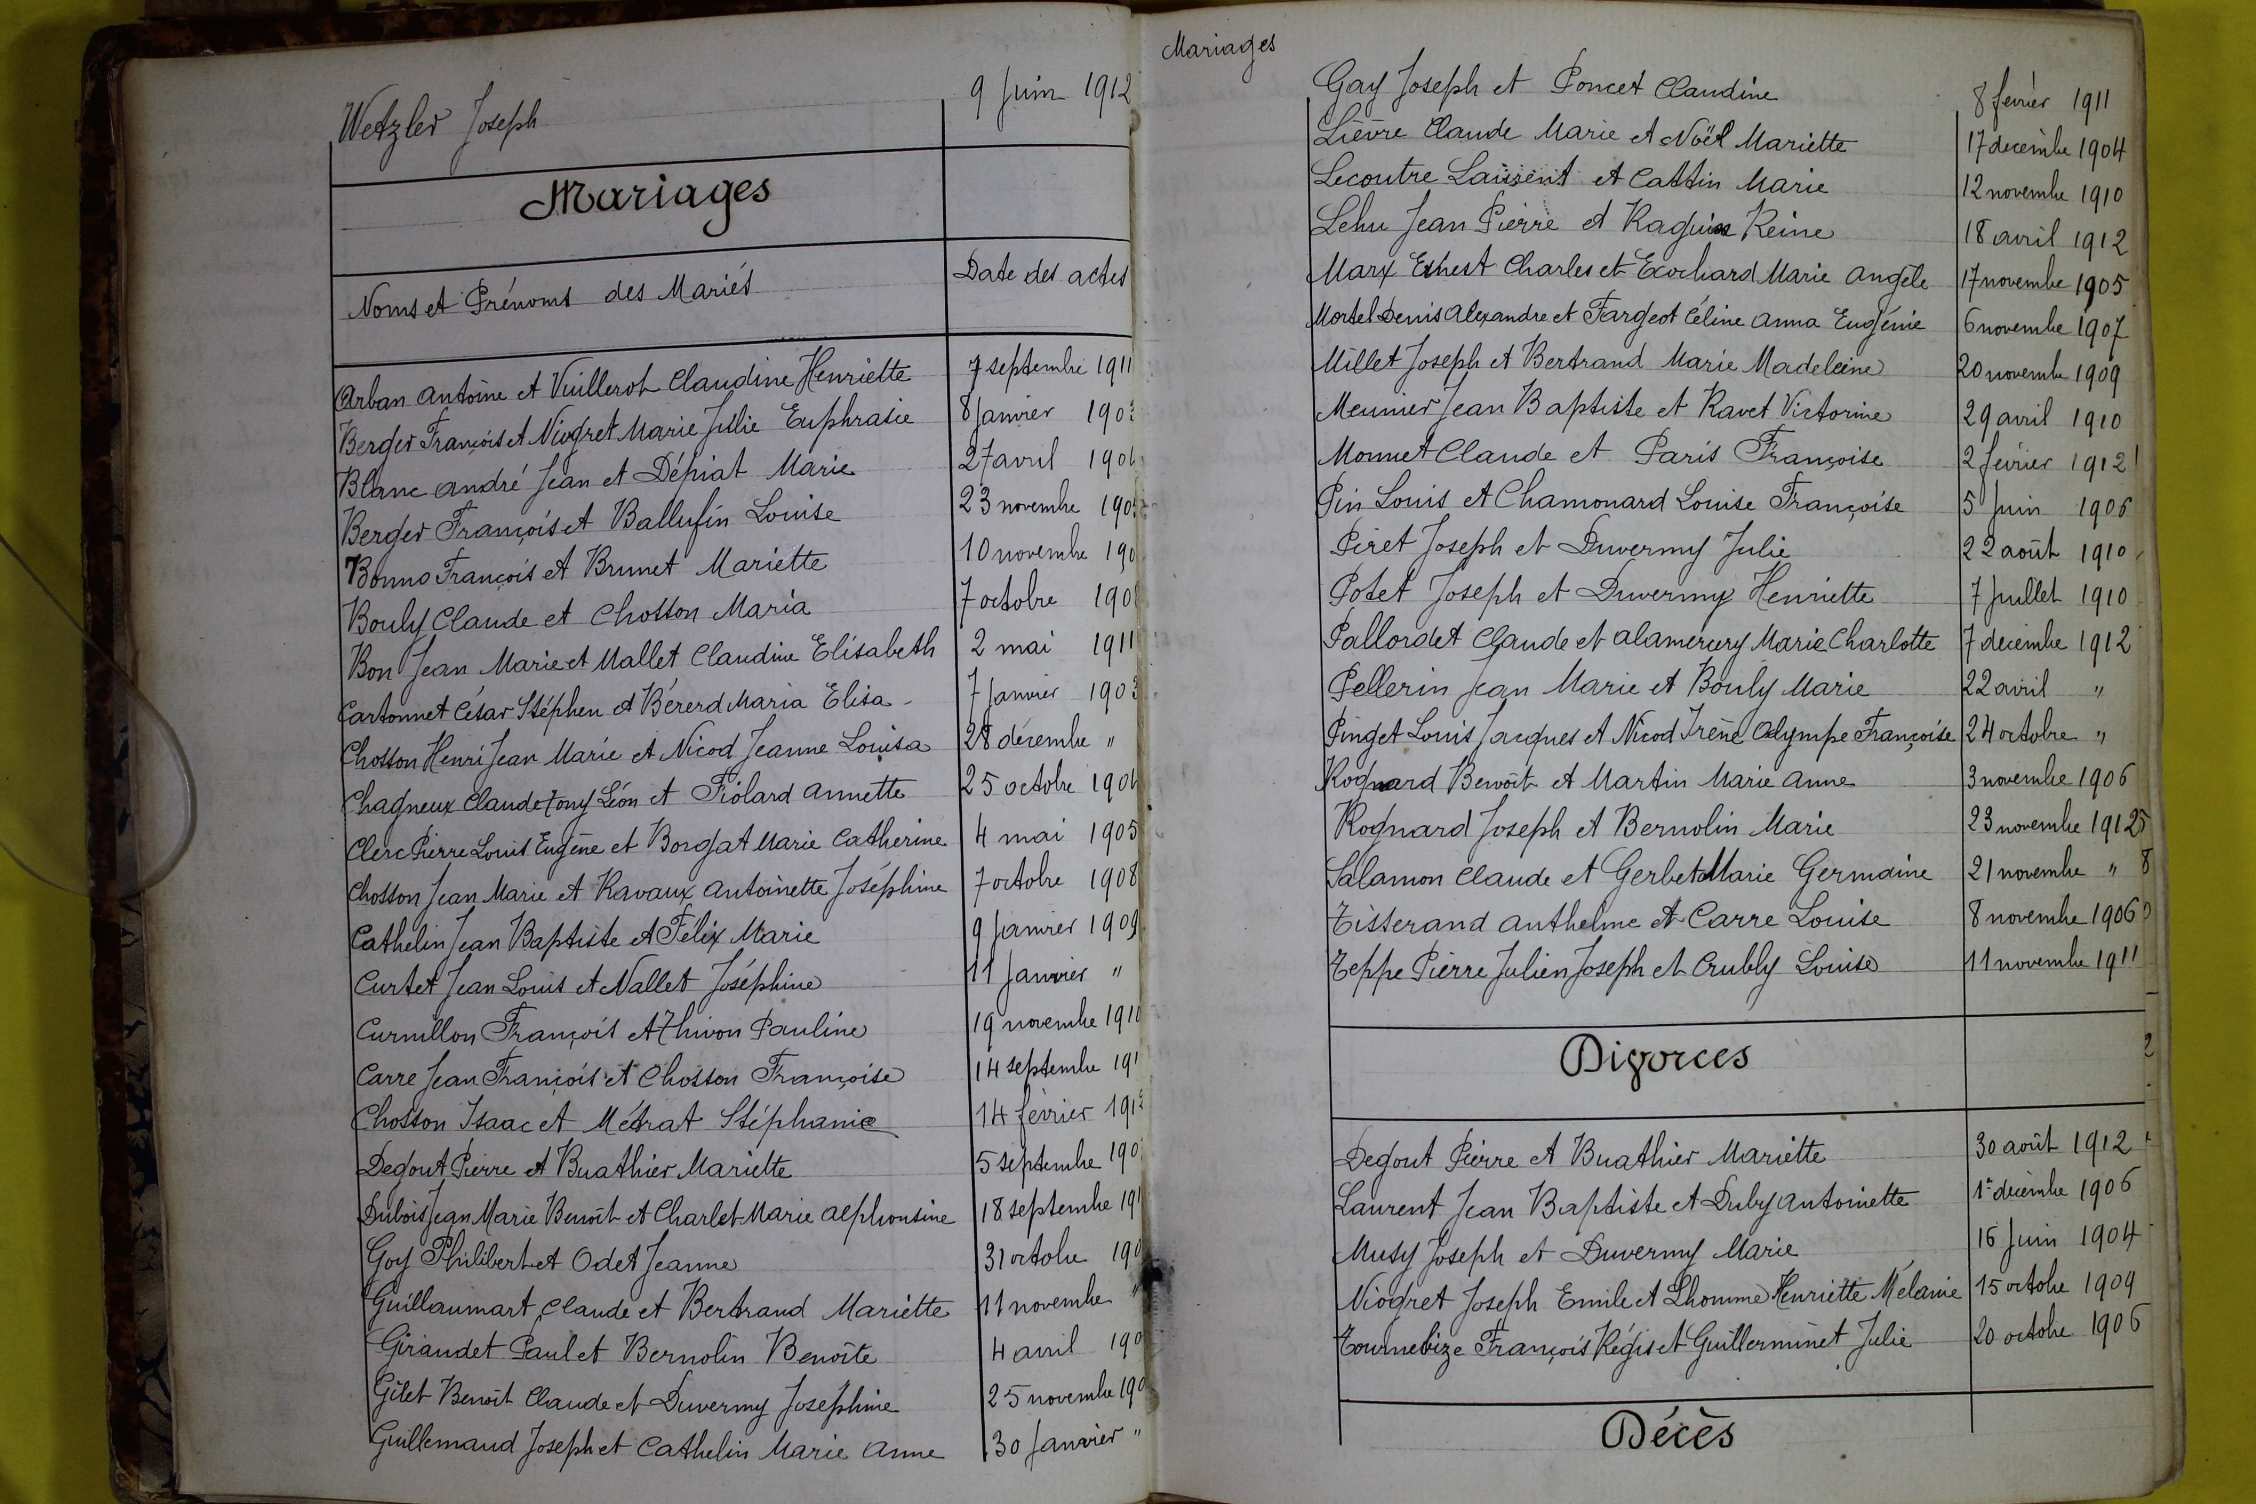 Wetzler Joseph 9 Juin 1912
Mariages
Noms et Prénoms des Mariés Date des actes
Arban Antoine et Vuillerot Claudine Henriette 7 septembre 1911
Berger François et Niogret Marie Julie Euphrasie 8 Janvier 1903
Blanc André Jean et Dépiat Marie 27 avril
Berger François et Ballufin Louise 23 novembre
Bonno François et Brunet Mariette 10 novembre
Bouly Claude et Chosson Maria 7 octobre 1908
Bon Jean Marie et Mallet Claudine Elisabeth 2 mai 1911
Cartonnet César Stéphen et Bérerd Maria Elisa 7 Janvier 1903
Chosson Henri Jean Marie et Nicod Jeanne Louisa 28 décembre "
Chagneux Claude Tony Léon et Fiolard Annette 25 octobre
Clerc Pierre Louis Eugène et Borgat Marie Catherine 4 mai 1905
Chosson Jean Marie et Ravaux Antoinette Joséphine 7 octobre 1908
Cathelin Jean Baptiste et Félix Marie 9 Janvier 1909
Curtet Jean Louis et Nallet Joséphine 11 Janvier "
Curnillon François et Thivon Pauline 19 novembre 1910
Carre Jean François et Chosson Françoise 14 septembre 191
Chosson Isaac et Métrat Stéphanie 14 février 1912
Degout Pierre et Buathier Mariette 5 septembre 190
Dubois Jean Marie Benoît et Charlet Marie Alphonsine 18 septembre 191
Goy Philibert et Odet Jeanne 31 octobre 190
Guillaumart Claude et Bertrand Mariette 11 novembre "
Giraudet Paul et Bernolin Benoîte 4 avril 190
Gilet Benoît Claude et Duvermy Joséphine 25 novembre 190
Guillemaud Joseph et Cathelin Marie Anne 30 Janvier "
Mariages
Gay Joseph et Poncet Claudine 8 février 1911
Lièvre Claude Marie et Noël Mariette 17 décembre 1904
Lecoutre Laurent et Cattin Marie 12 novembre 1910
Lehu Jean Pierre et Raguin Reine 18 avril 1912
Marx Ernest Charles et Ecochard Marie Angèle 17 novembre 1905
Mortel Denis Alexandre et Fargeot Céline Anna Eugénie 6 novembre 1907
Millet Joseph et Bertrand Marie Madeleine 20 novembre 1909
Meunier Jean Baptiste et Ravet Victorine 29 avril 1910
Monnet Claude et Paris Françoise 2 février 1912
Pin Louis et Chamonard Louise Françoise 5 Juin 1906
Piret Joseph et Duvermy Julie 22 août 1910
Potet Joseph et Duvermy Henriette 7 Juillet 1910
Pallordet Claude et Alamercery Marie Charlotte 7 décembre 1912
Pellerin Jean Marie et Bouly Marie 22 avril "
Pinget Louis Jacques et Nicod Irène Olympe Françoise 24 octobre "
Rognard Benoît et Martin Marie Anne 3 novembre 1906
Rognard Joseph et Bernolin Marie 23 novembre 1912
Salamon Claude et Gerbet Marie Germaine 21 novembre "
Tisserand Anthelme et Carre Louise 8 novembre 1906
Teppe Pierre Julien Joseph et Crubly Louise 11 novembre 1911
Divorces
Degout Pierre et Buathier Mariette 30 août 1912
Laurent Jean Baptiste et Duby Antoinette 1er décembre 1906
Musy Joseph et Duvermy Marie 16 Juin 1904
Niogret Joseph Emile et Lhomme Henriette Mélanie 15 octobre 1909
Tournebize François Régis et Guillerminet Julie 20 octobre 1906
Décès